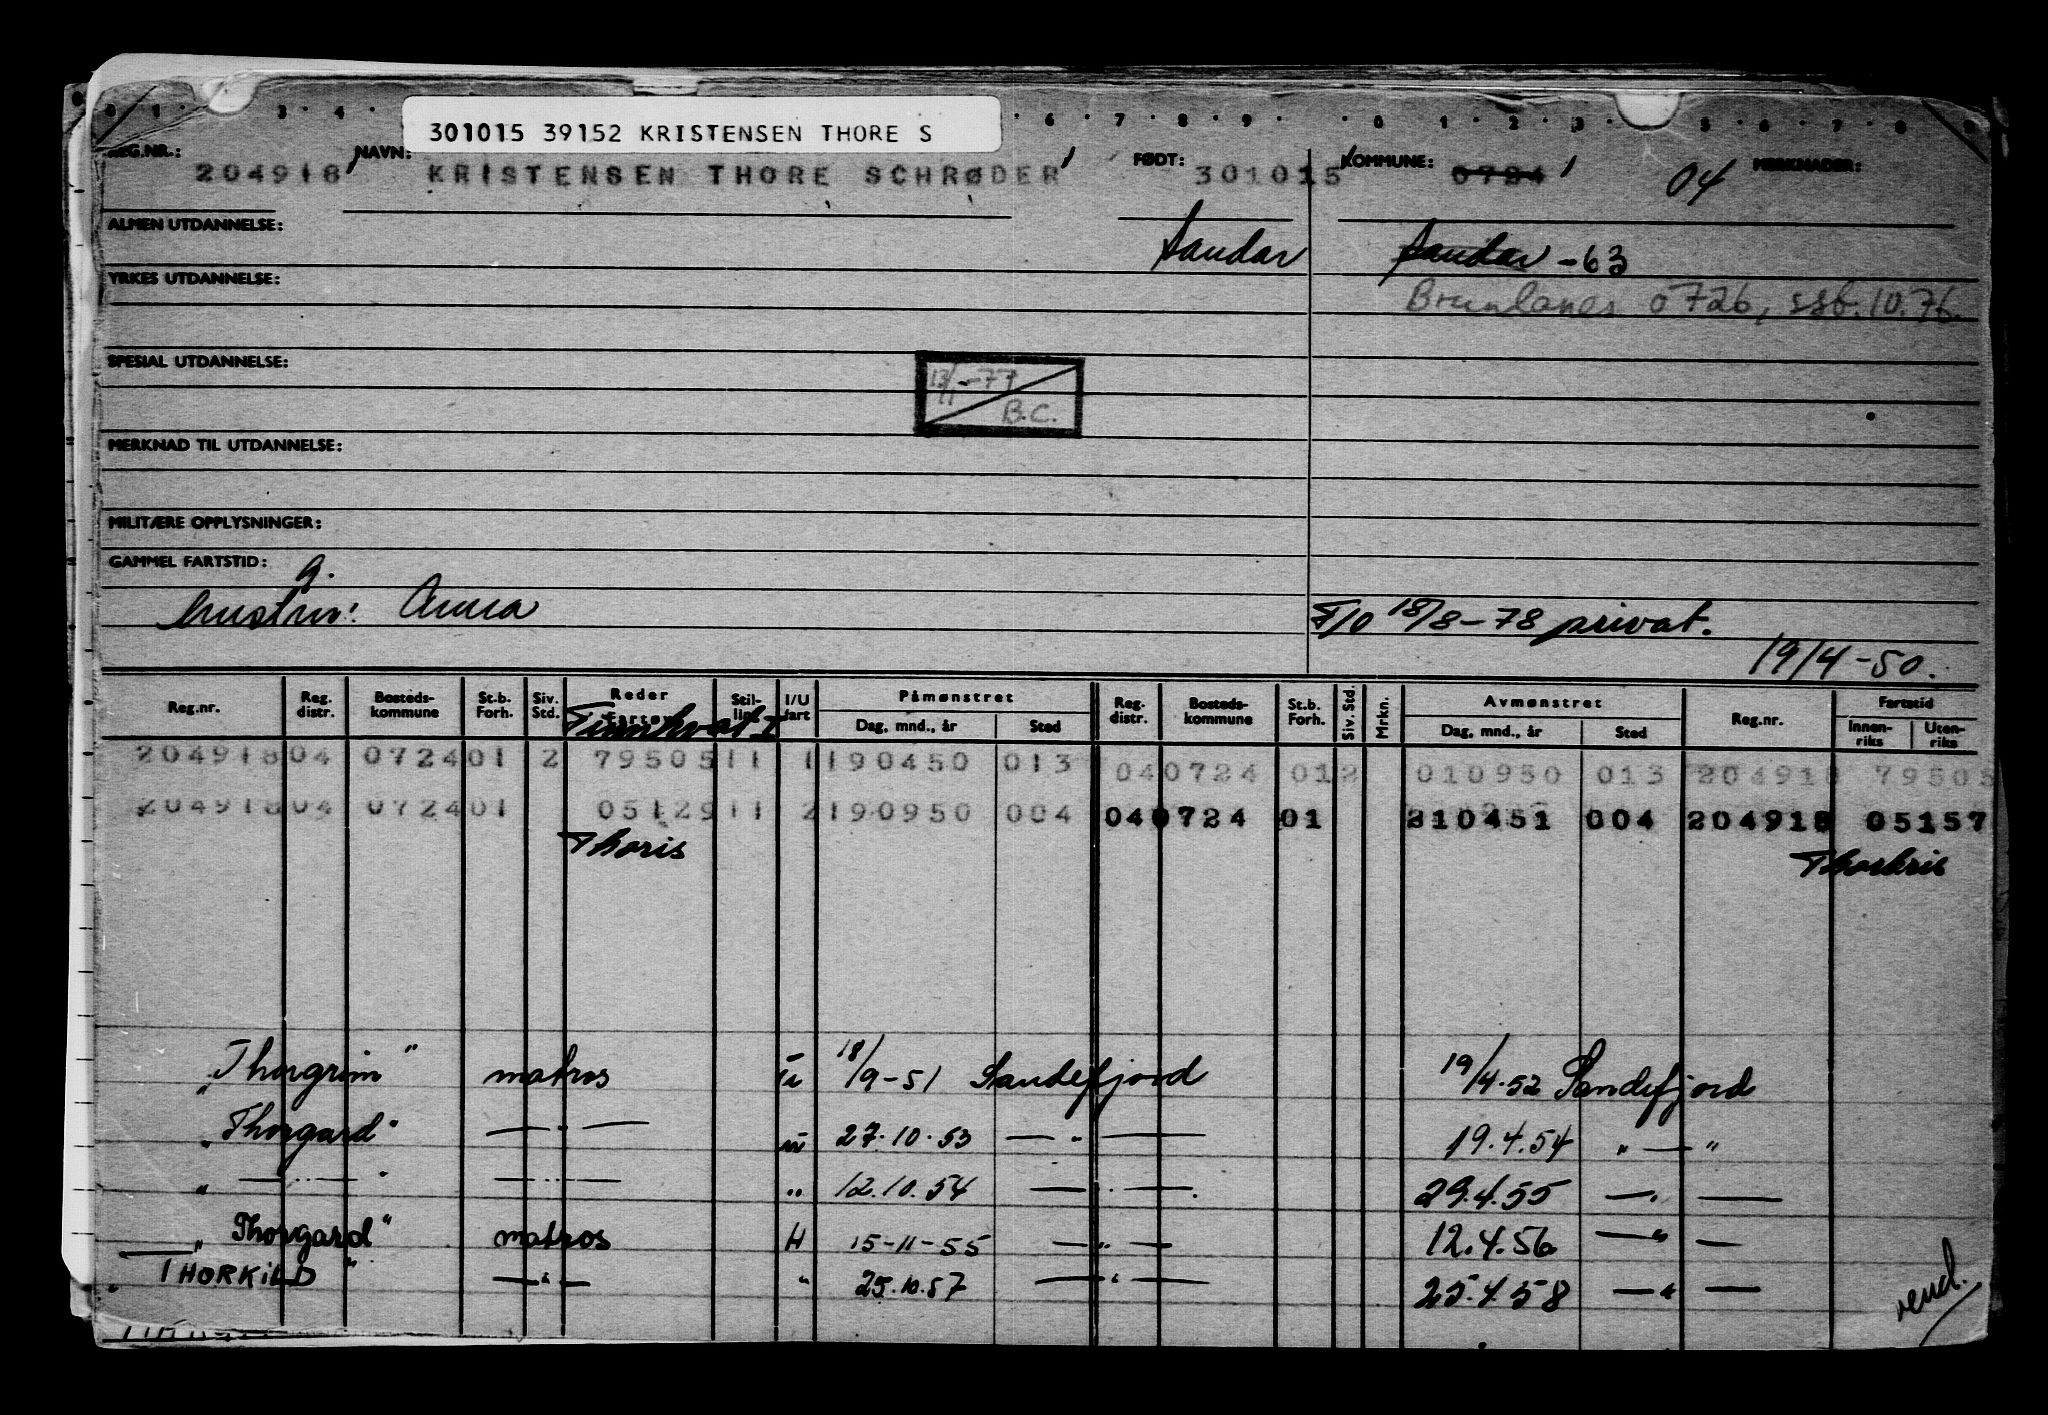 301015 39152 KRISTENSEN THORE S
REG.NR.: 204918 NAVN: KRISTENSEN THORE SCHRØDER FØDT: 301015 KOMMUNE: 0724 04 MERKNADER:
ALMEN UTDANNELSE: Sandar Sandar -63
YRKES UTDANNELSE: Brunlanes 0726, ssb. 10.76.
SPESIAL UTDANNELSE:
13/11 -77
B.C.
MERKNAD TIL UTDANNELSE:
MILITÆRE OPPLYSNINGER:
GAMMEL FARTSTID:
g.
hustru: Anna
F/O 18/8-78 privat.
19/4-50.
Reg.nr. Reg. distr. Bosteds- kommune St.b. Forh. Siv. Std. Reder Fartøy Stil- ling I/U fart Påmønstret Dag, mnd., år Sted Reg- distr. Bosteds- kommune St.b. Forh. Siv. Std. Mrkn. Avmønstret Dag, mnd., år Sted Reg.nr. Fartstid Innen- riks Uten- riks
Finnhval I
204918 04 0724 01 2 79505 11 1 190450 013 04 0724 01 2 010950 013 204918 79505
204918 04 0724 01 05129 11 2 190950 004 04 0724 01 210451 004 204918 05157
Thoris Thorkris
"Thorgrim" matros u 18/9-51 Sandefjord 19/4-52 Sandefjord
"Thorgard" — " — u 27.10.53 — " — 19.4.54 " — "
" — " — " — " — " 12.10.54 — " — 29.4.55 — " —
"Thorgard" matros U 15-11-55 — " — 12.4.56 — " —
"THORKILD" — " — " 25.10.57 — " — 25.4.58 — " —
vend.